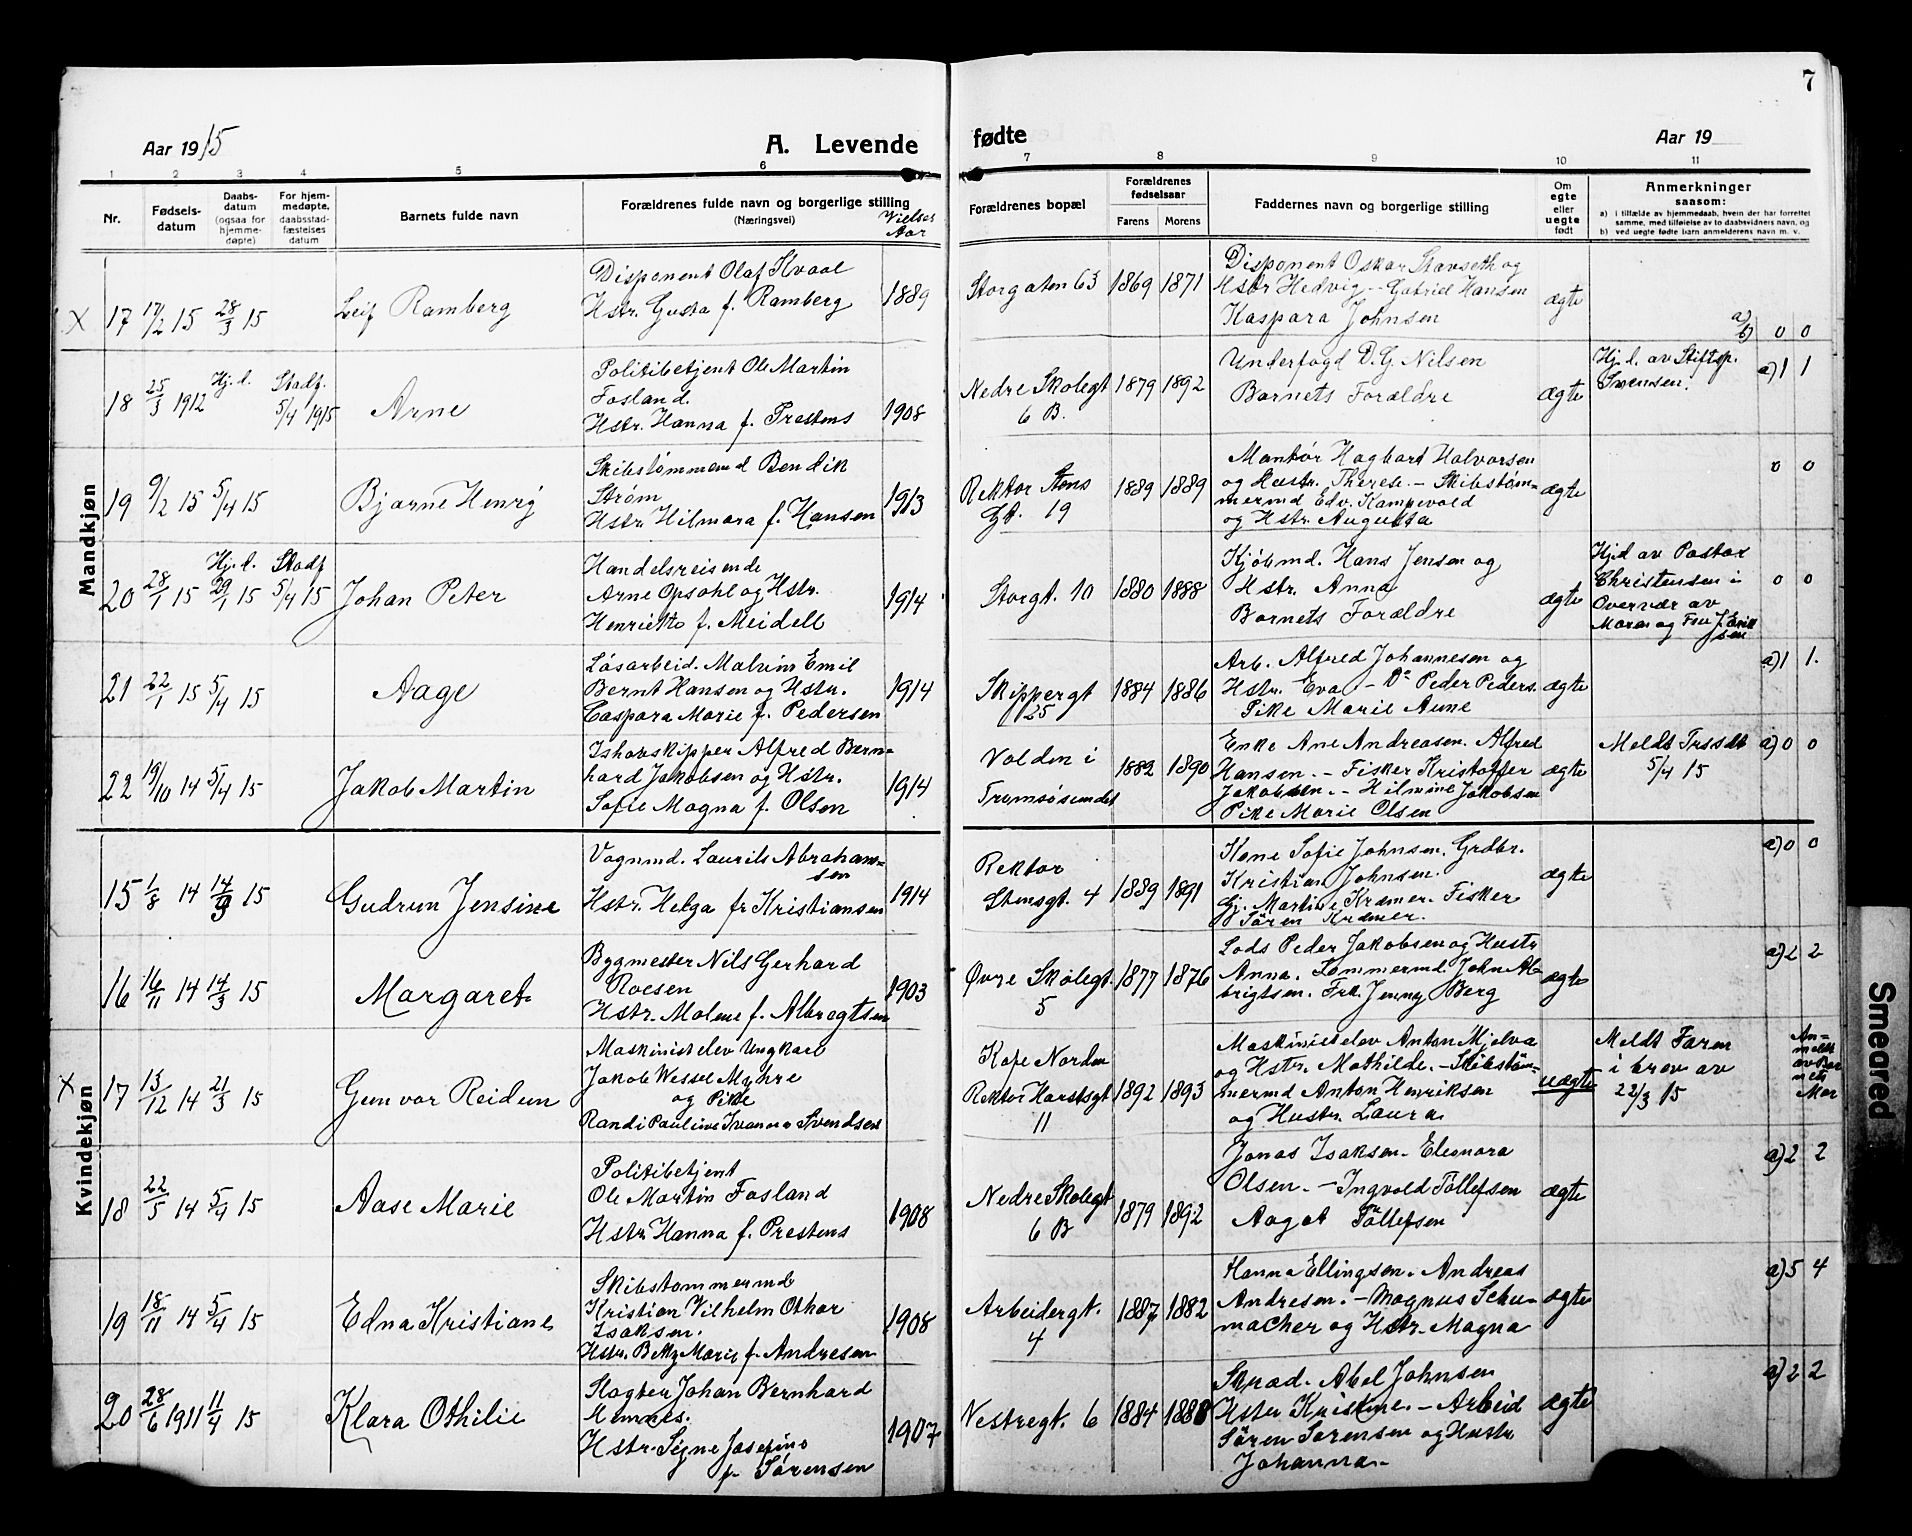 7
Aar 1915
A. Levende
fødte
Aar 19
1 2 3 4 5 6 7 8 9 10 11
Nr.
Fødsels-
datum
Daabs-
datum
(ogsaa for
hjemme-
døpte)
For hjem-
medøpte,
daabsstad-
fæstelses
datum
Barnets fulde navn
Forældrenes fulde navn og borgerlige stilling
(Næringsvei)
Vielses
Aar
Forældrenes bopæl
Forældrenes
fødselsaar
Farens
Morens
Faddernes navn og borgerlige stilling
Om
egte
eller
uegte
født
Anmerkninger
saasom:
a) i tilfælde av hjemmedaab, hvem der har forrettet
samme, med tilføielse av to daabsvidners navn, og
b) ved uegte fødte barn anmelderens navn m. v.
Mandkjøn
X 17 17/2 15 28/3 15
Leif Ramberg
Disponent Olaf Kvaal
Hstr. Gusta f. Ramberg
1889
Storgaten 63
1869 1871
Disponent Oskar Stavseth og
Hstr Hedvig - Gabriel Hansen
Kaspara Johnsen
ægte
a)
b) 0 0
18 25/3 1912 Hj. d. Stadf. 5/4 1915
Arne
Politibetjent Ole Martin
Fosland.
Hstr. Hanna f. Prestens
1908
Nedre Skolegt
6 B.
1879 1892
Underfogd D. G. Nilsen
Barnets Forældre
ægte
Hj. d. av Stiftsp.
Svensen.
a) 1 1
19 9/2 15 5/4 15
Bjarne Henry
Skibstømmermd Bendik
Strøm
Hstr. Hilmara f. Hansen
1913
Rektor Stens
Gt. 19
1889 1889
Montør Hagbart Halvorsen
og Hustr. Therese. - Skibstøm-
mermd Edv. Kampevold
og Hstr. Augusta
ægte
0 0
20 28/1 15 Hj. d. 29/1 15 Stadf 5/4 15
Johan Peter
Handelsreisende
Arne Opsahl og Hstr.
Henriette f. Meidell
1914
Storgt. 10
1880 1888
Kjøbmd. Hans Jensen og
Hstr. Anna
Barnets Forældre
ægte
Hj.d av Pastor
Christensen i
Overvær av
Moren og Fru
0 0
21 22/1 15 5/4 15
Aage
Løsarbeid. Malvin Emil
Bernt Hansen og Hstr.
Caspara Marie f. Pedersen
1914
Skippergt
25
1884 1886
Arb. Alfred Johannesen og
Hstr. Eva. - Do Peder Peders.
Pike Marie Aune
ægte
a) 1 1.
22 19/10 14 5/4 15
Jakob Martin
Ishavskipper Alfred Bern-
hard Jakobsen og Hstr.
Sofie Magna f. Olsen
1914
Volden i
Tromsøsundet
1882 1890
Enke Ane Andreasen. Alfred
Hansen. - Fisker Kristoffer
Jakobsen. - Hilmine Jakobsen
Pike Marie Olsen
ægte
Meldt Trssdt
5/4 15
a) 0 0
Kvindekjøn
15 1/8 14 14/3 15
Gudrun Jensine
Vognmd. Laurits Abraham-
sen
Hstr. Helga f. Kristiansen
1914
Rektor
Stensgt. 4
1889 1891
Kone Sofie Johnsen. Grdbr.
Kristian Johnsen.
Gj. Martine Kræmer. Fisker
Søren Kræmer.
ægte
a) 0 0
16 16/11 14 14/3 15
Margaret
Bygmester Nils Gerhard
Roesen
Hstr. Malene f. Albregtsen
1903
Øvre Skolegt.
5
1877 1876
Lods Peder Jakobsen og Hustr
Anna. Tømmermd. John Al-
brigtsen. Frk. Jenny Berg
ægte
a) 2 2
X 17 13/12 14 21/3 15
Gunvor Reidun
Maskinistelev Ungkarl
Jakob Wessel Myhre
og Pike
Randi Pauline Ivanora Svendsen
Kafe Norden
Rektor Horstsgt
11
1892 1893
Maskinistelev Anton Mjelva
og Hstr. Mathilde. - Skibstøm-
mermd Anton Henriksen
og Hustr. Laura
uægte
Meldt Faren
i brev av
22/3 15
An-
meldt
av Bar
nets
Mor
18 22/5 14 5/4 15
Aase Marie
Politibetjent
Ole Martin Fosland
Hstr Hanna f. Prestens
1908
Nedre Skolegt
6 B
1879 1892
Jonas Isaksen. Eleonora
Olsen. - Ingvold Tollefsen
Aagot Tollefsen
ægte
a) 2 2
19 18/11 14 5/4 15
Edna Kristiane
Skibstømmermd
Kristian Vilhelm Othar
Isaksen.
Hstr. Betzy Marie f. Andresen
1908
Arbeidergt.
4
1887 1882
Hanna Ellingsen. Andreas
Andresen. - Magnus Schu-
macher og Hstr. Magna
ægte
a) 5 4
20 28/6 1911 11/4 15
Klara Othilie
Slagter Johan Bernhard
Hemnes.
Hstr. Signe Josefine
f. Sørensen
1907
Vestregt. 6
1884 1888
Skræd. Abel Johnsen
Hstr Kristine. - Arbeid
Søren Sørensen og Hustr
Johanna.
ægte
a) 2 2
Smeared